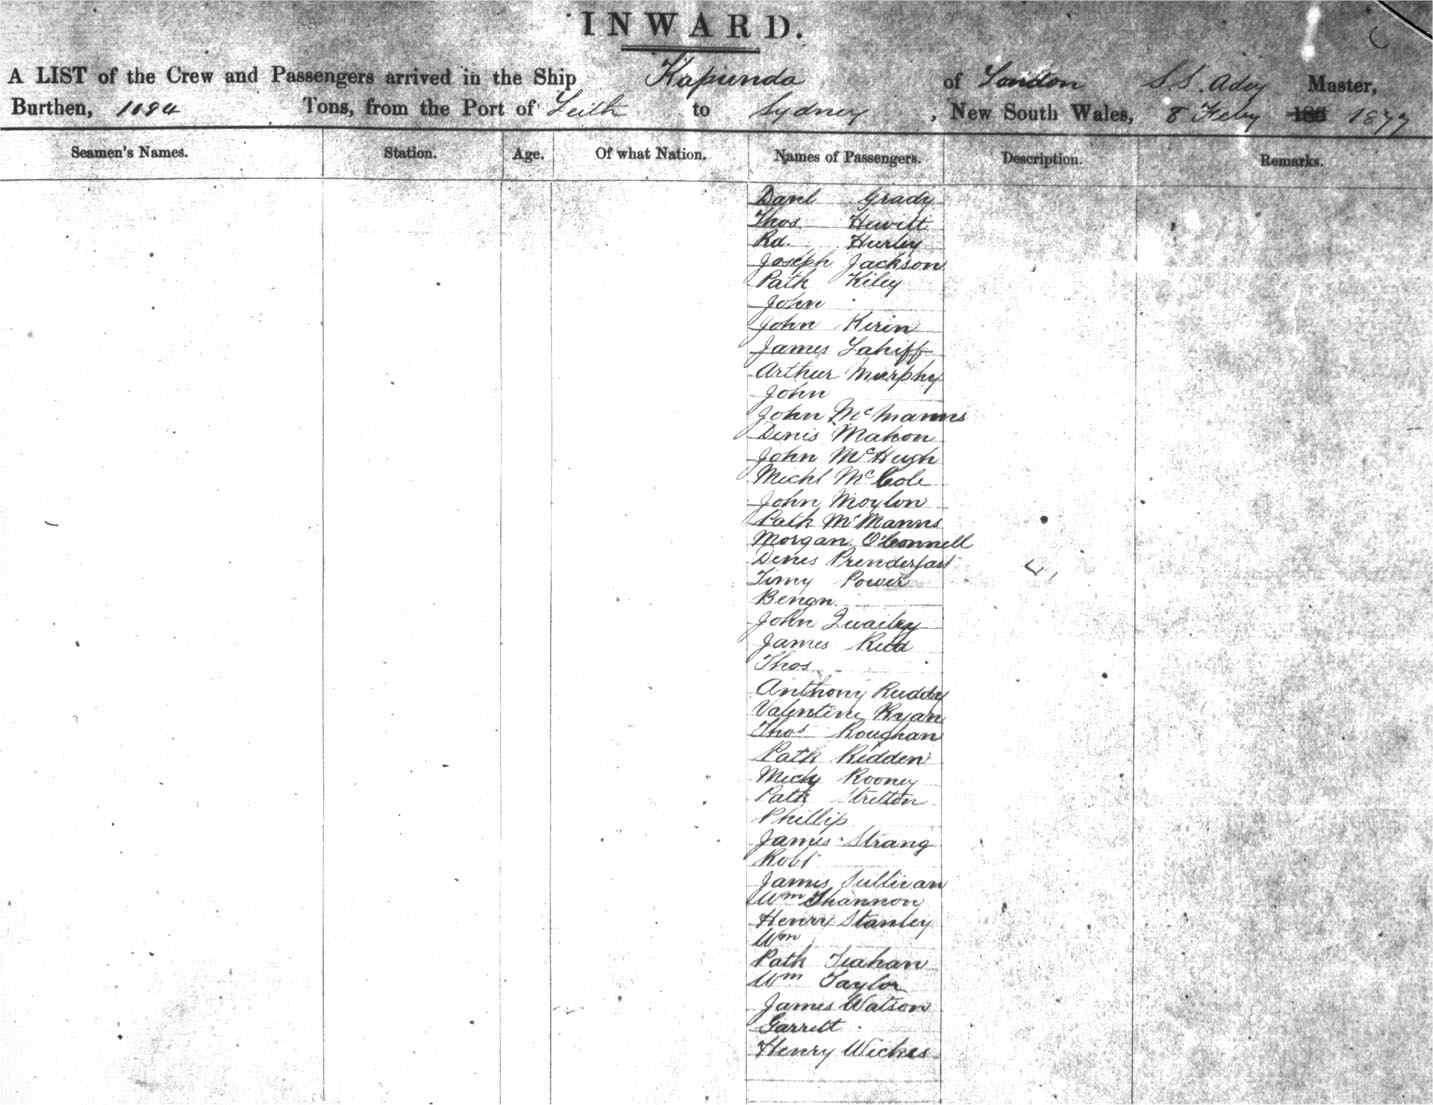 INWARD.
A LIST of the Crew and Passengers arrived in the Ship Kapunda of London S.S. Adey Master,
Burthen, 1084 Tons, from the Port of Leith to Sydney, New South Wales, 8 Feby 185 1877
Seamen's Names. Station. Age. Of what Nation. Names of Passengers. Description. Remarks.
Danl Grady
Thos Hewitt
Rd. Hurley
Joseph Jackson
Path Kiley
John
John Kirin
James Lahiff
Arthur Murphy
John
John McManns
Denis Mahon
John McHugh
Michl McCole
John Moylon
Path McManns
Morgan O'Connell
Denis Prenderfast
Timy Power
Bengn.
John Quailey
James Reid
Thos
Anthony Ruddy
Valentine Ryan
Thos Roughan
Path Ridden
Micky Rooney
Path Stretton
Phillip
James Strang
Robt
James Sullivan
Wm Shannon
Henry Stanley
Wm
Path Teahan
Wm Taylor
James Watson
Garrett
Henry Wickes